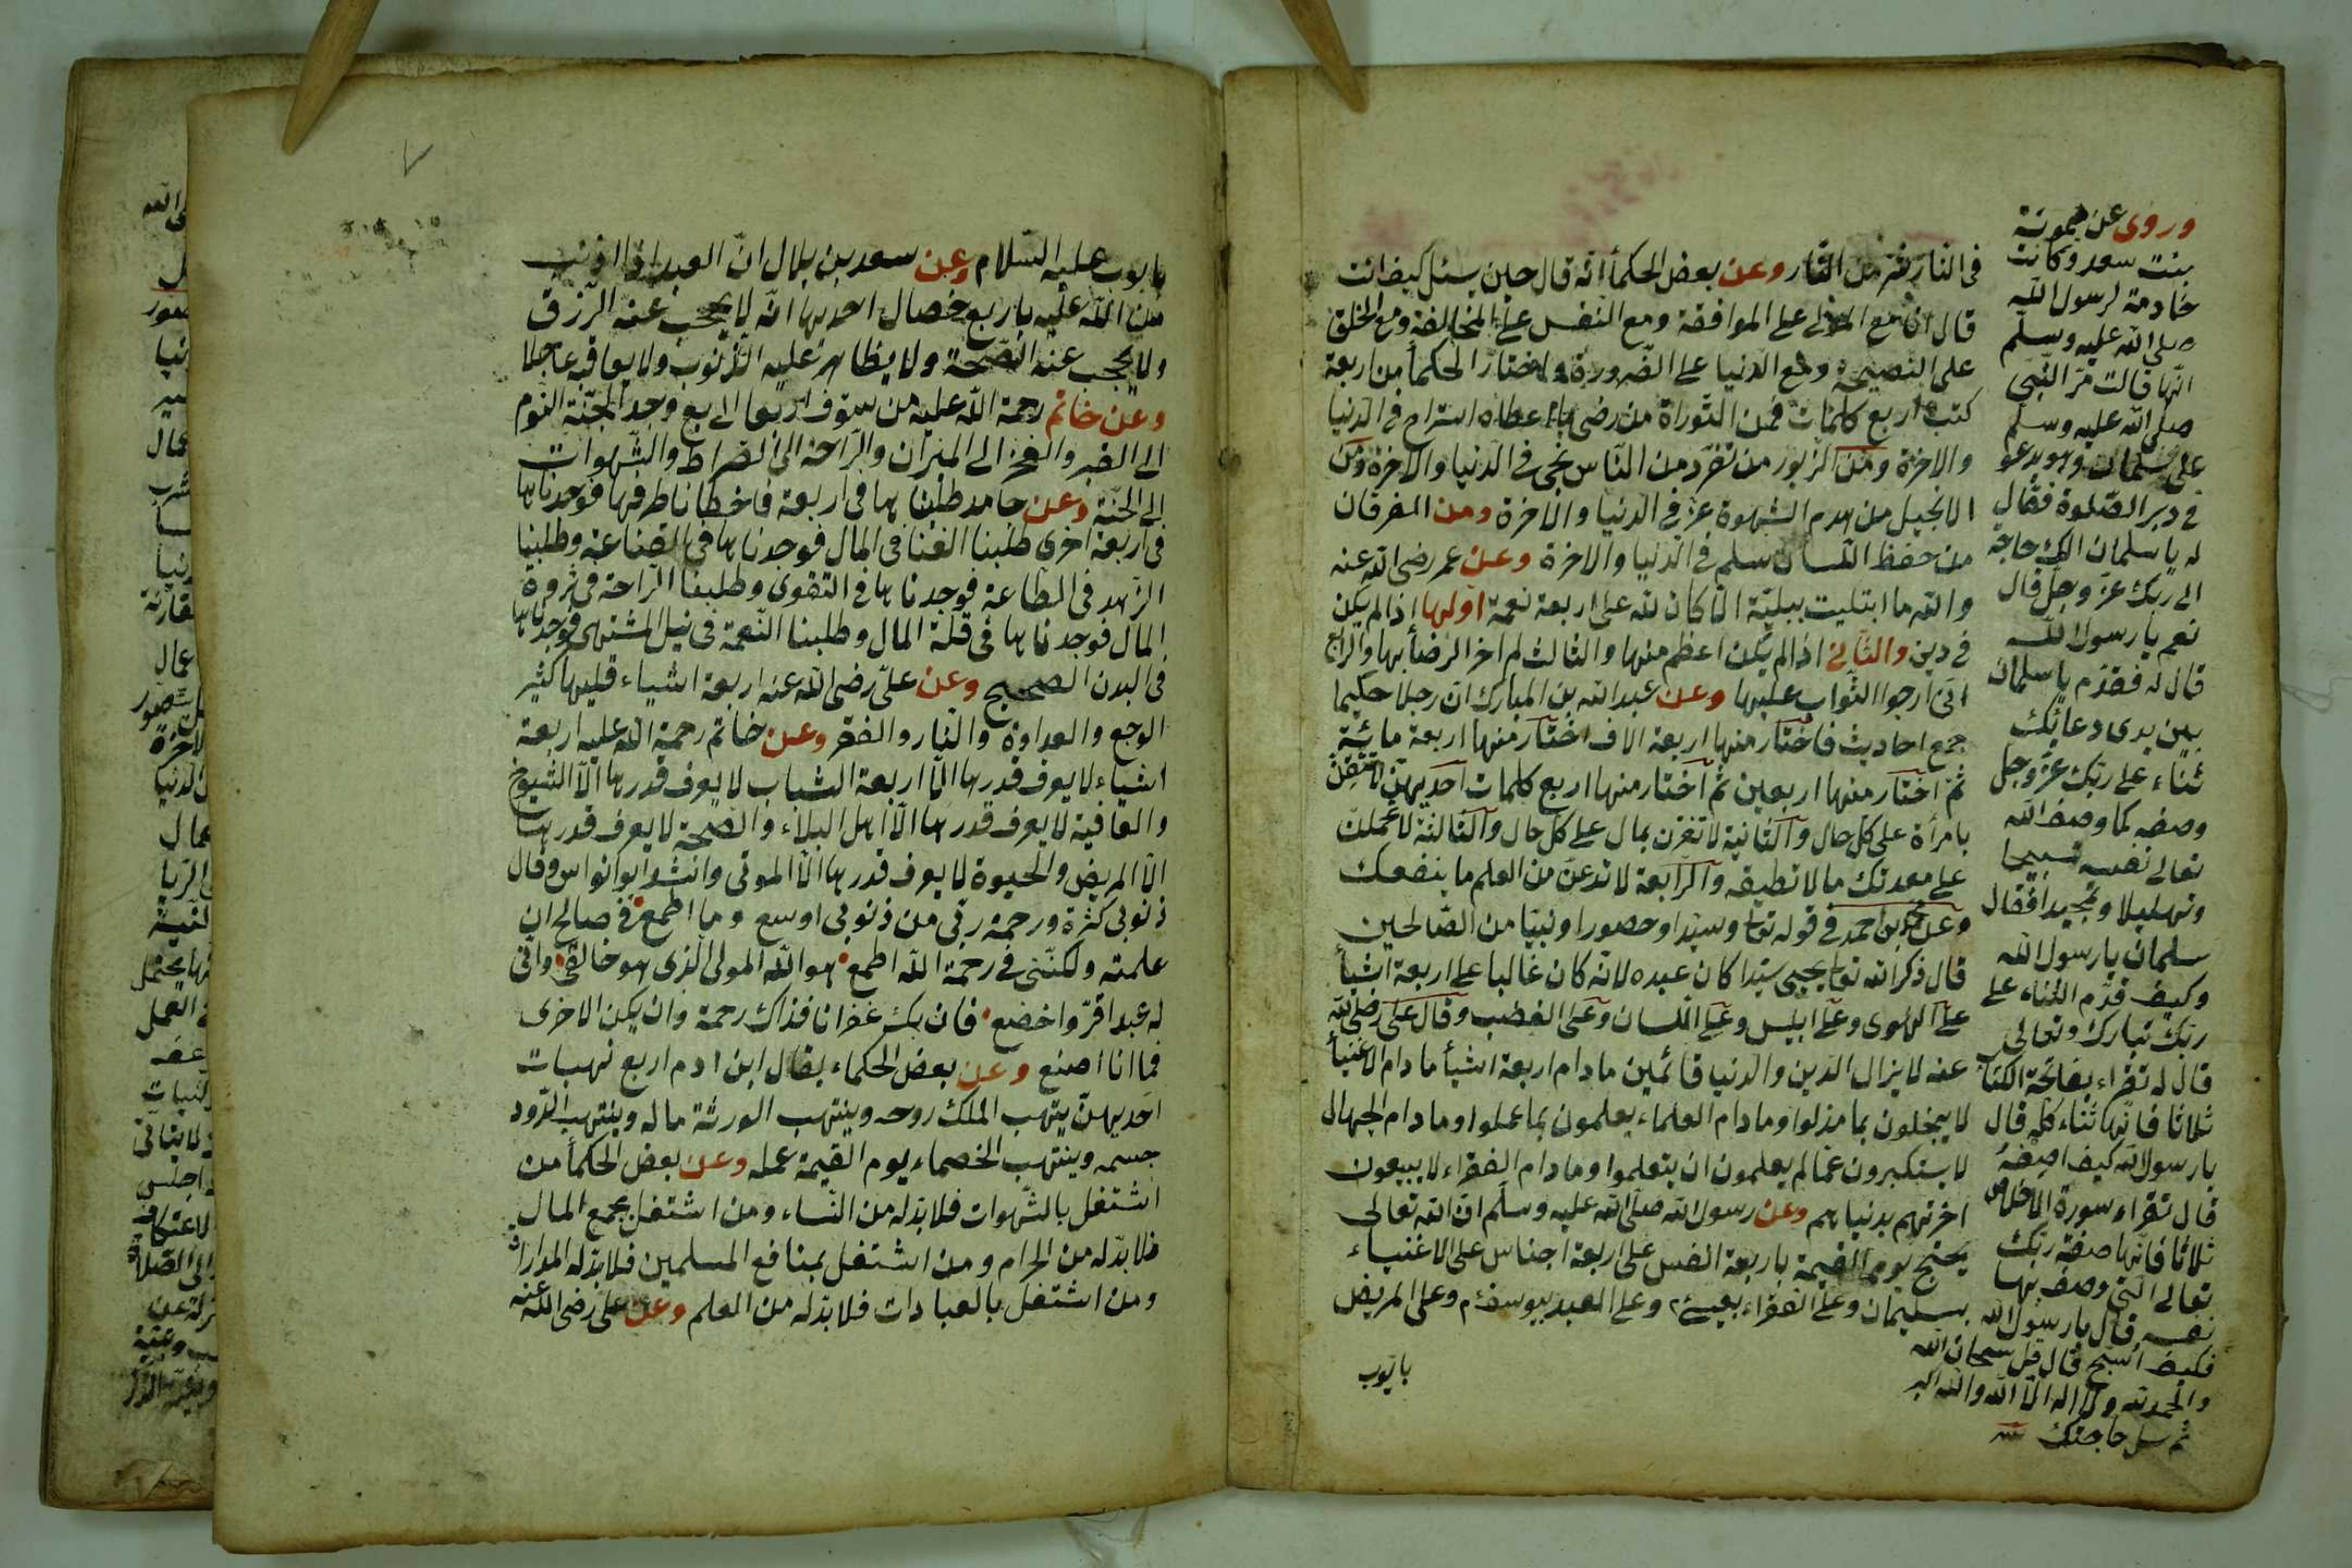 في النار شر من النار وعن بعض الحكمأ انه قال حين سئل كيف انت
قال انا مع المولى على الموافقة ومع النفس على المخالفة ومع الخلق
على النصيحة ومع الدنيا على الضرورة واختار الحكمأ من اربعة
كتب اربع كلمات فمن التوراة من رضى بما اعطاه استراح في الدنيا
والاخرة ومن الزبور من تفرد من الناس نجى في الدنيا والاخرة ومن
الانجيل من هدم الشهوة عز في الدنيا والاخرة ومن الفرقان
من حفظ اللسان سلم في الدنيا والاخرة وعن عمر رضى الله عنه
والله ما ابتليت ببلية الا كان لله على اربعة نعمة اولها اذا لم يكن
في دين والثاني اذا لم يكن اعظم منها والثالث لم احر الرضأ بها والرابع
انى ارجوا الثواب عليها وعن عبد الله بن المبارك ان رجلا حكيما
جمع احاديث فاختار منها اربعة الاف اختار منها اربعة مائة
ثم اختار منها اربعين ثم اختار منها اربع كلمات احديهن لا تثقن
بامرأة على كل حال والثانية لا تغرن بمال على كل حال والثالثة لا تحملن
على معدتك ما لا تطيقه والرابعة لا تدعن من العلم ما ينفعك
وعن محمد بن احمد في قوله تعا وسيدا وحصورا ونبيا من الصالحين
قال ذكر الله تعا يحيى سيدا كان عبده لانه كان غالبا على اربعة اشيأ
على الهوى وعلى ابليس وعلى اللسان وعلى الغضب وقال على رضى الله
عنه لا يزال الدين والدنيا قائمين ما دام اربعة اشيأ ما دام الاغنيأ
لا يبخلون بما خولوا وما دام العلماء يعلمون بما عملوا وما دام الجهال
لا يستكبرون عما لم يعلمون ان يتعلموا وما دام الفقراء لا يبيعون
اخرتهم بدنياهم وعن رسول الله صلى الله عليه وسلم ان الله تعالى
يحتج يوم القيمة باربعة انفس على اربعة اجناس على الاغنياء
بسليمان وعلى الفقراء بعيسى م وعلى العبد بيوسف م وعلى المريض
بايوب
وروى عن ميمونة
بنت سعد وكانت
خادمة لرسول الله
صلى الله عليه وسلم
انها قالت مر النبى
صلى الله عليه وسلم
على سلمان وهو يدعو
في دبر الصلوة فقال
له يا سلمان الك حاجة
الى ربك عز وجل قال
نعم يا رسول الله
قال له فقدم يا سلمان
بين يدى دعائك
ثناء على ربك عز وجل
وصفه كما وصف الله
تعالى نفسه تسبيحا
وتهليلا وتحميدا فقال
سلمان يا رسول الله
وكيف قدم الثناء على
ربك تبارك وتعالى
قال له تقراء بفاتحة الكتاب
ثلاثا فانها ثناء كله قال
يا رسول الله كيف اصفه
قال تقراء سورة الاخلاص
ثلاثا فانها صفة ربك
تعالى التى وصف بها
نفسه قال يا رسول الله
فكيف اسبح قال قل سبحان الله
والحمد لله ولا اله الا الله والله اكبر
ثم سل حاجتك
بايوب عليه السلام وعن سعد بن بلال ان العبد اذا اذنب
من الله عليه باربع خصال احديها انه لا يحجب عنه الرزق
ولا يحجب عنه الصحة ولا يظاهر عليه الذنوب ولا يعاقبه عاجلا
وعن خاتم رحمة الله عليه من سوف اربعا الى بع وجد الجنة النوم
الى القبر والفخر الى الميزان والراحة الى الصراط والشهوات
الى الجنة وعن حامد طلبناها في اربعة فاخطانا طرقها فوجدناها
في اربعة اخرى طلبنا الغنا في المال فوجدناها في القناعة وطلبنا
الزهد في الطاعة فوجدناها في التقوى وطلبنا الراحة في ثروة
المال فوجدناها في قلة المال وطلبنا النعمة في نيل المشتهى فوجدناها
في البدن الصحيح وعن على رضى الله عنه اربعة اشياء قليها كثير
الوجع والعداوة والنار والفقر وعن خاتم رحمة الله عليه اربعة
اشياء لا يعرف قدرها الا اربعة الشباب لا يعرف قدرها الا الشيوخ
والعافية لا يعرف قدرها الا اهل البلاء والصحة لا يعرف قدرها
الا المريض والحيوة لا يعرف قدرها الا الموتى وانشد ابو انواس وقال
ذنوبى كثرة ورحمة ربى من ذنوبى اوسع وما اطمع في صالح ان
علمته ولكننى في رحمة الله اطمع هو الله المولى الذى هو خالقى وانى
له عبد اقر واخضع فان يك غفرانا فذاك رحمة وان يكن الاخرى
فما انا اصنع وعن بعض الحكماء يقال ابن ادم اربع نهبات
احديهن ينتهب الملك روحه وينتهب الورثة ماله وينتهب الدود
جسمه وينتهب الخصماء يوم القيمة عمله وعن بعض الحكمأ من
اشتغل بالشهوات فلا بد له من النساء ومن اشتغل بجمع المال
فلا بد له من الحرام ومن اشتغل بمنافع المسلمين فلا بد له المدارات
ومن اشتغل بالعبادات فلا بد له من العلم وعن على رضى الله عنه